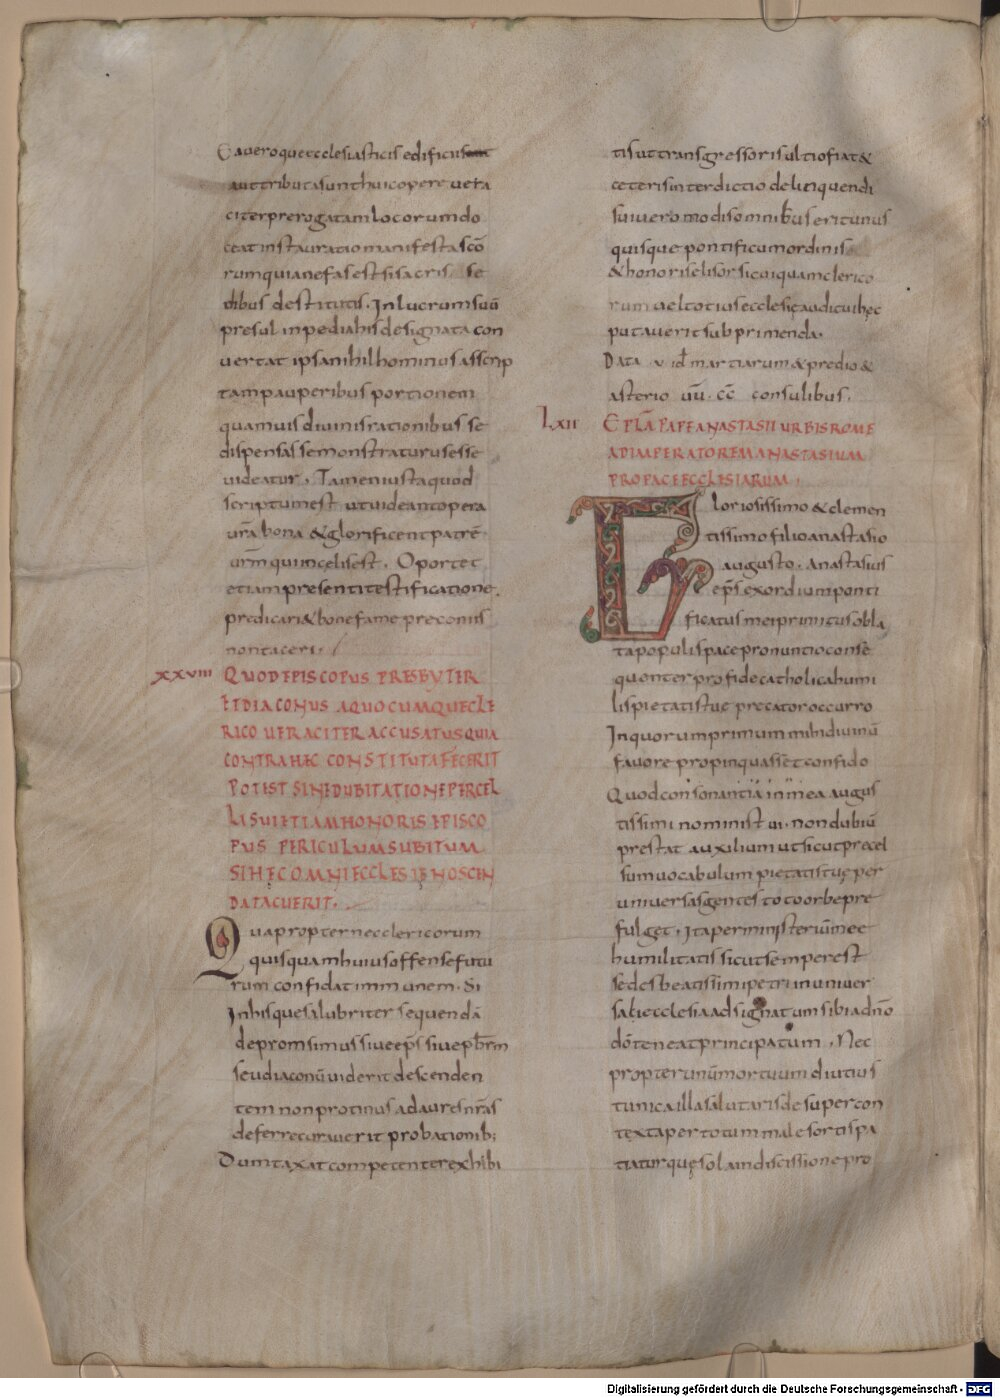 Eavero que ecclesiasticis edificiis
aut tributa sunt huic operi vera
citer prerogatam locorum do
ceat instauratio manifesta sco
rum quia nefas est si sacris se
dibus destitutis. In lucrum suū
presul inpediahis designata con
vertat ipsa nihilhominus asscrip
tam pauperibus portionem
quamuis diuinis rationibus se
dispensasse monstraturus esse
uideatur. Tamen iusta quod
scriptum est ut uideant opera
ur̄a bona & glorificent patrē
ur̄m qui in celis est. Oportet
etiam presenti testificatione.
predicari & bone fame preconiis
non taceri.
XXVIII QUOD EPISCOPUS PRESBYTER
ET DIACONUS A QUOCUMQUE CLE
RICO VERACITER ACCUSATUS QUIA
CONTRA HÆC CONSTITUTA FECERIT
POTEST SINE DUBITATIONE PERCEL
LI SUI ETIAM HONORIS EPISCO
PUS PERICULUM SUBITUM
SI HĘC OMNI ECCLESIĘ NOSCEN
DA TACUERIT.
Quapropter nec clericorum
quisquam huius offense futu
rum confidat inmunem. Si
In hisque salubriter sequendā
depromsimus siue ep̄s siue pb̄rm
seu diaconū uiderit deliquen
tem non protinus ad aures nr̄as
deferre curauerit probationib;
Dumtaxat competenter exhibi
tis ut transgressoris ultio fiat &
ceteris interdictio delinquendi
sui uero modis omnibus erit unus
quisque pontificum ordinis
& honoris elisor si cuiquam clerico
rum uel totius ecclesię auditui hęc
putauerit subprimenda.
Data v id̄ martiarum & predio &
asterio ūū. cc̄ consulibus.
LXII EPLA PAPE ANASTASII URBIS ROME
AD IMPERATOREM ANASTASIUM
PRO PACE ECCLESIARUM.
Gloriosissimo & clemen
tissimo filio anastasio
augusto. Anastasius
ep̄s exordium ponti
ficatus mei primitus obla
ta populis pace pronuntio conse
quenter pro fide catholica humi
lis pietatis tue precator occurro
In quo rum primum mihi diuinū
fauore propinquasset confido
Quod consonantia in mea augus
tissimi nominis tui. non dubiū
prestat auxilium ut sicut precel
sum uocabulum pietatis tuę per
uniuersas gentes toto orbe pre
fulget. Ita per ministeriū mee
humilitatis sicut semper est
sedes beatissimi petri in uniuer
sali ecclesia adsignatum sibi a dn̄o
dō teneat principatum. Nec
propter unū mortuum diutius
tunica illa salutaris desuper con
texta per totum male sortis pa
tiatur quę sola in discissione pro
Digitalisierung gefördert durch die Deutsche Forschungsgemeinschaft - DFG